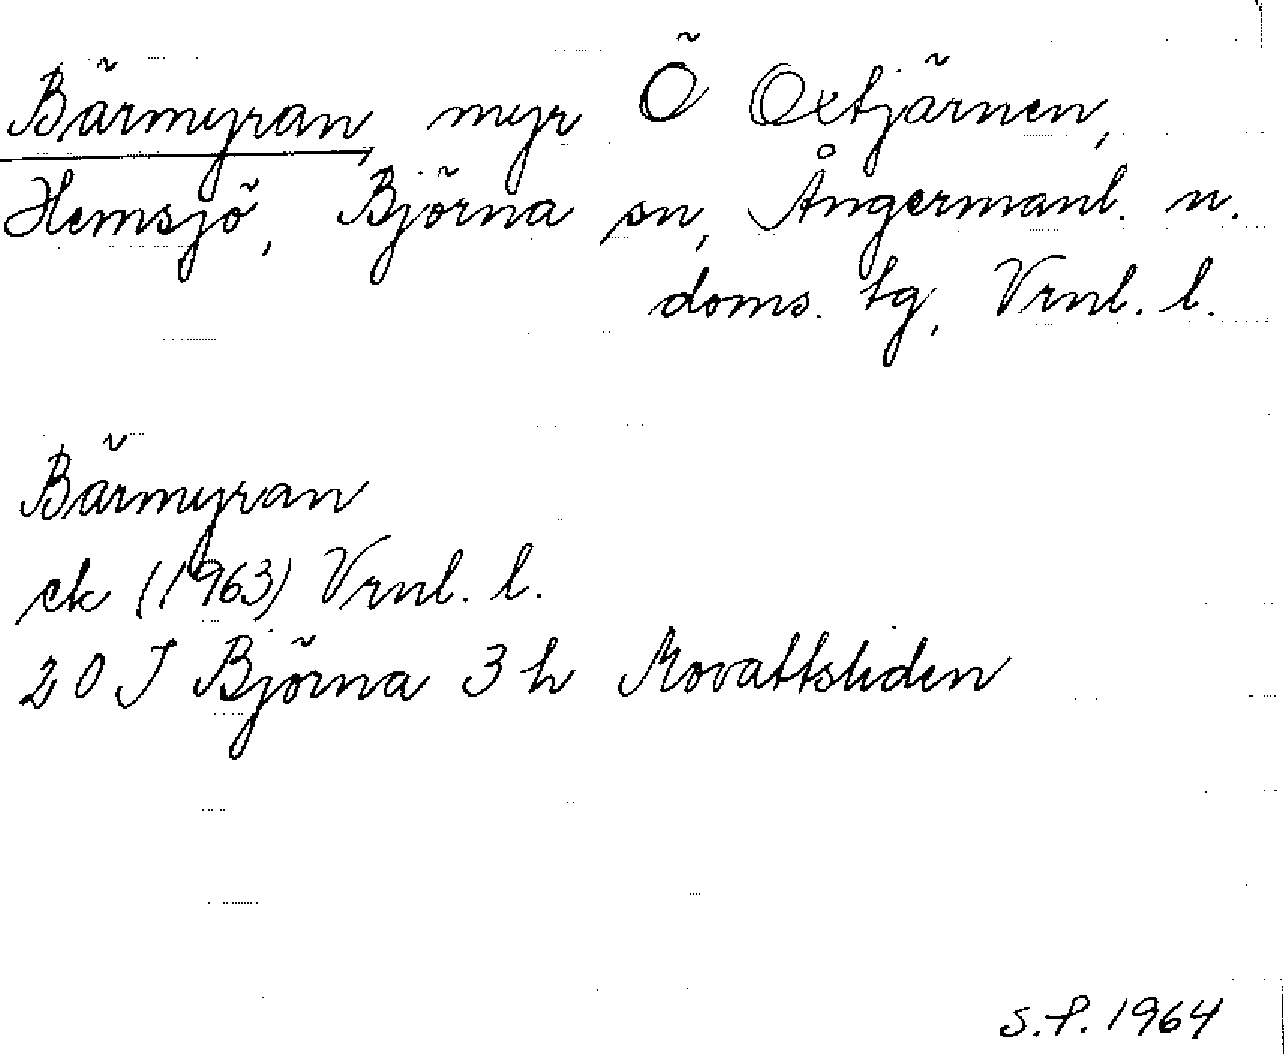 Bärmyran, myr Ö Oxtjärnen,
Hemsjö, Björna sn, Ångermanl. n.
doms. tg, Vrnl. l.
Bärmyran
ek (1963) Vrnl. l.
20 J Björna 3 h Movattsliden
S.P. 1964